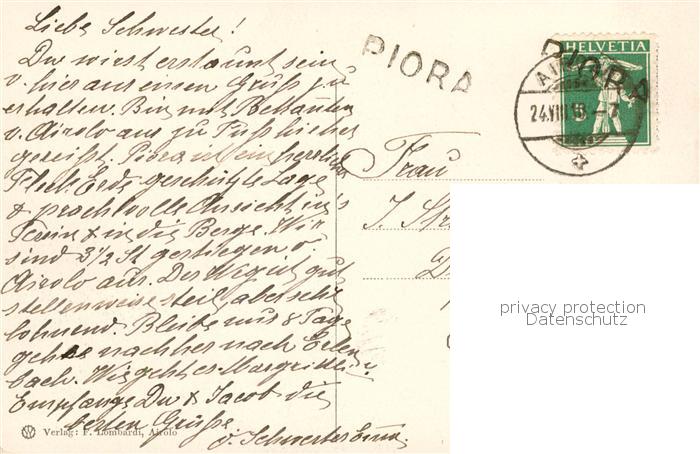 Liebe Schwester!
Du wirst erstaunt sein
v. hier aus einen Gruss zu
erhalten. Bin mit
v. Airolo aus zu Fuss hieher
gereisst. Piora ist ein herrlich
Fleck Erde, geschützte Lage
& prachtvolle Aussicht in's
Tessin & in die Berge. Wir
sind 3½ St gestiegen v.
Airolo aus. Der Weg ist gut
stellenweise steil, aber sehr
lohnend. Bleibe nur 8 Tage
gehe nachher nach Erlen
bach. Wie geht es
Empfange Du & Jacob die
besten Grüsse
v. Schwester
Verlag: F. Lombardi, Airolo
PIORA
HELVETIA
PIORA
24.VIII
Frau
J.
privacy protection
Datenschutz